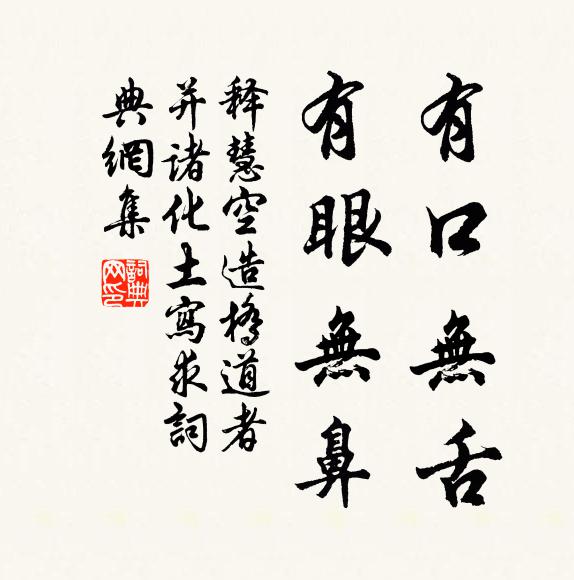 有口無舌
有眼無鼻
释慧空造橋道者
并諸化土寫求詞
典網集
詞典网印